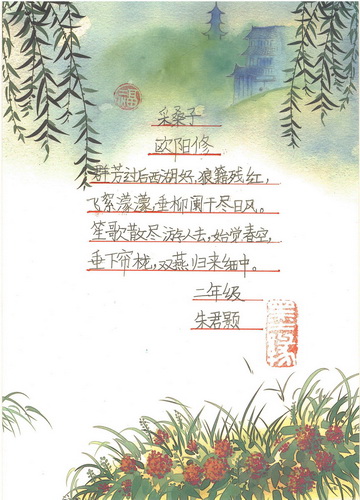 采桑子
欧阳修
群芳过后西湖好，狼籍残红，
飞絮濛濛，垂柳阑干尽日风。
笙歌散尽游人去，始觉春空，
垂下帘栊，双燕归来细中。
二年级
朱君颢
福